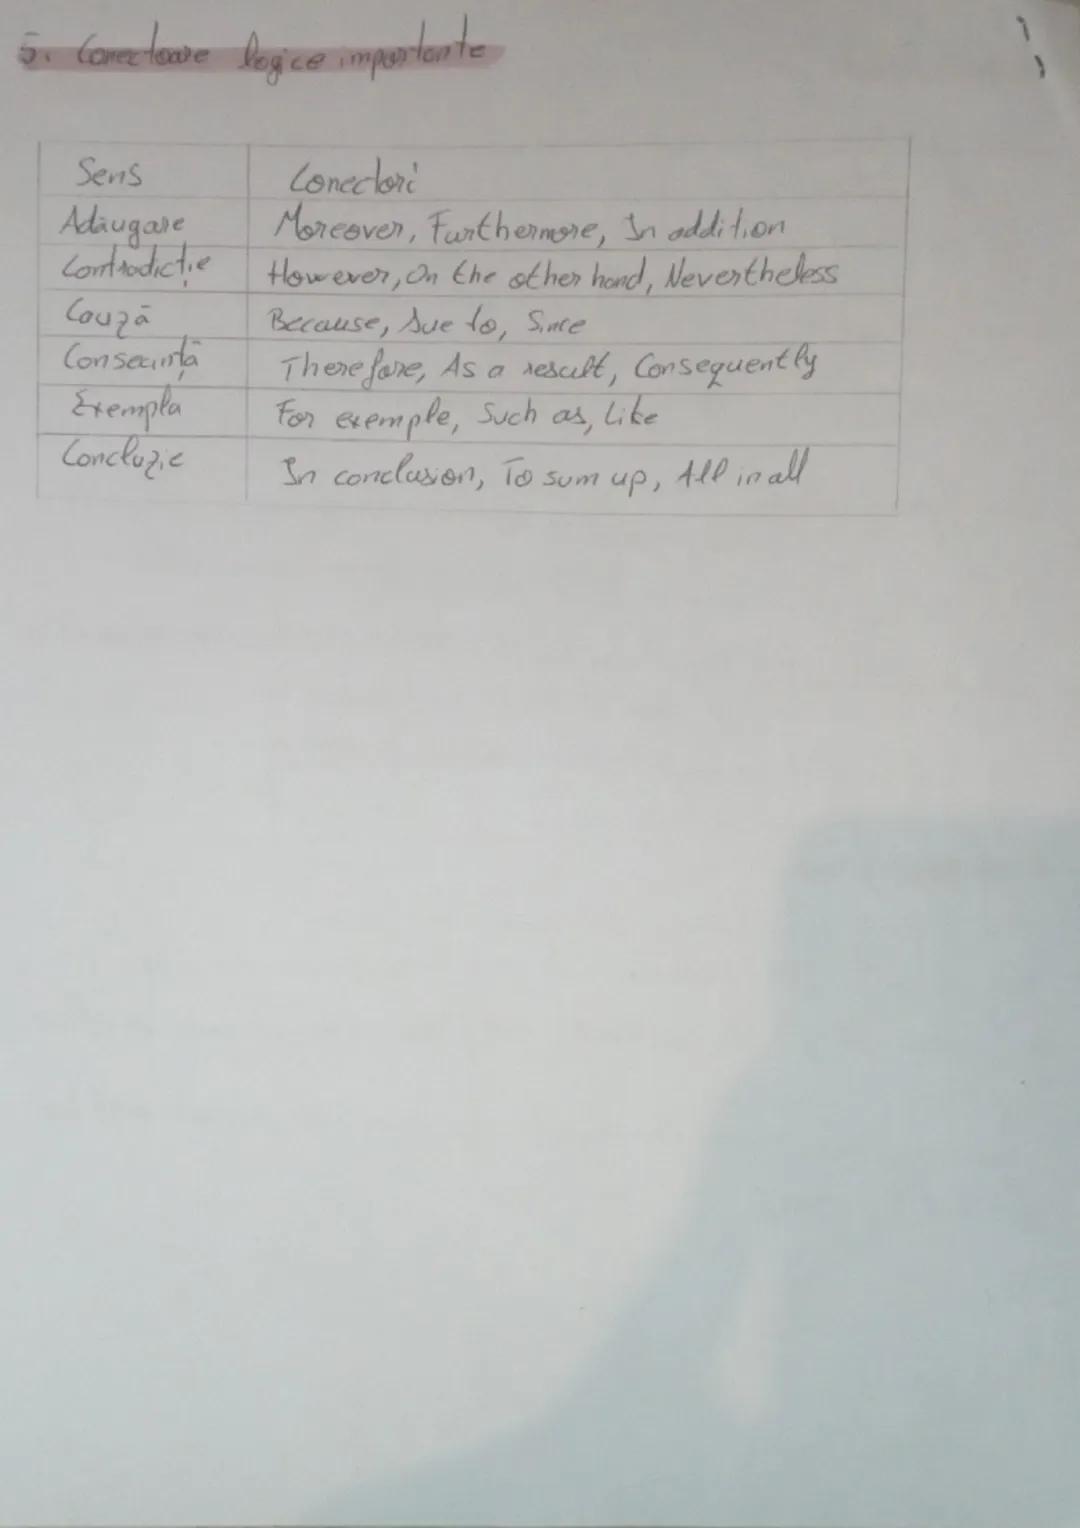 5. Conectoare logice importante
Sens Conectori
Adăugare Moreover, Furthermore, In addition
Contradicție However, On the other hand, Nevertheless
Cauză Because, Due to, Since
Consecință Therefore, As a result, Consequently
Exemplu For exemple, Such as, Like
Concluzie In conclusion, To sum up, All in all